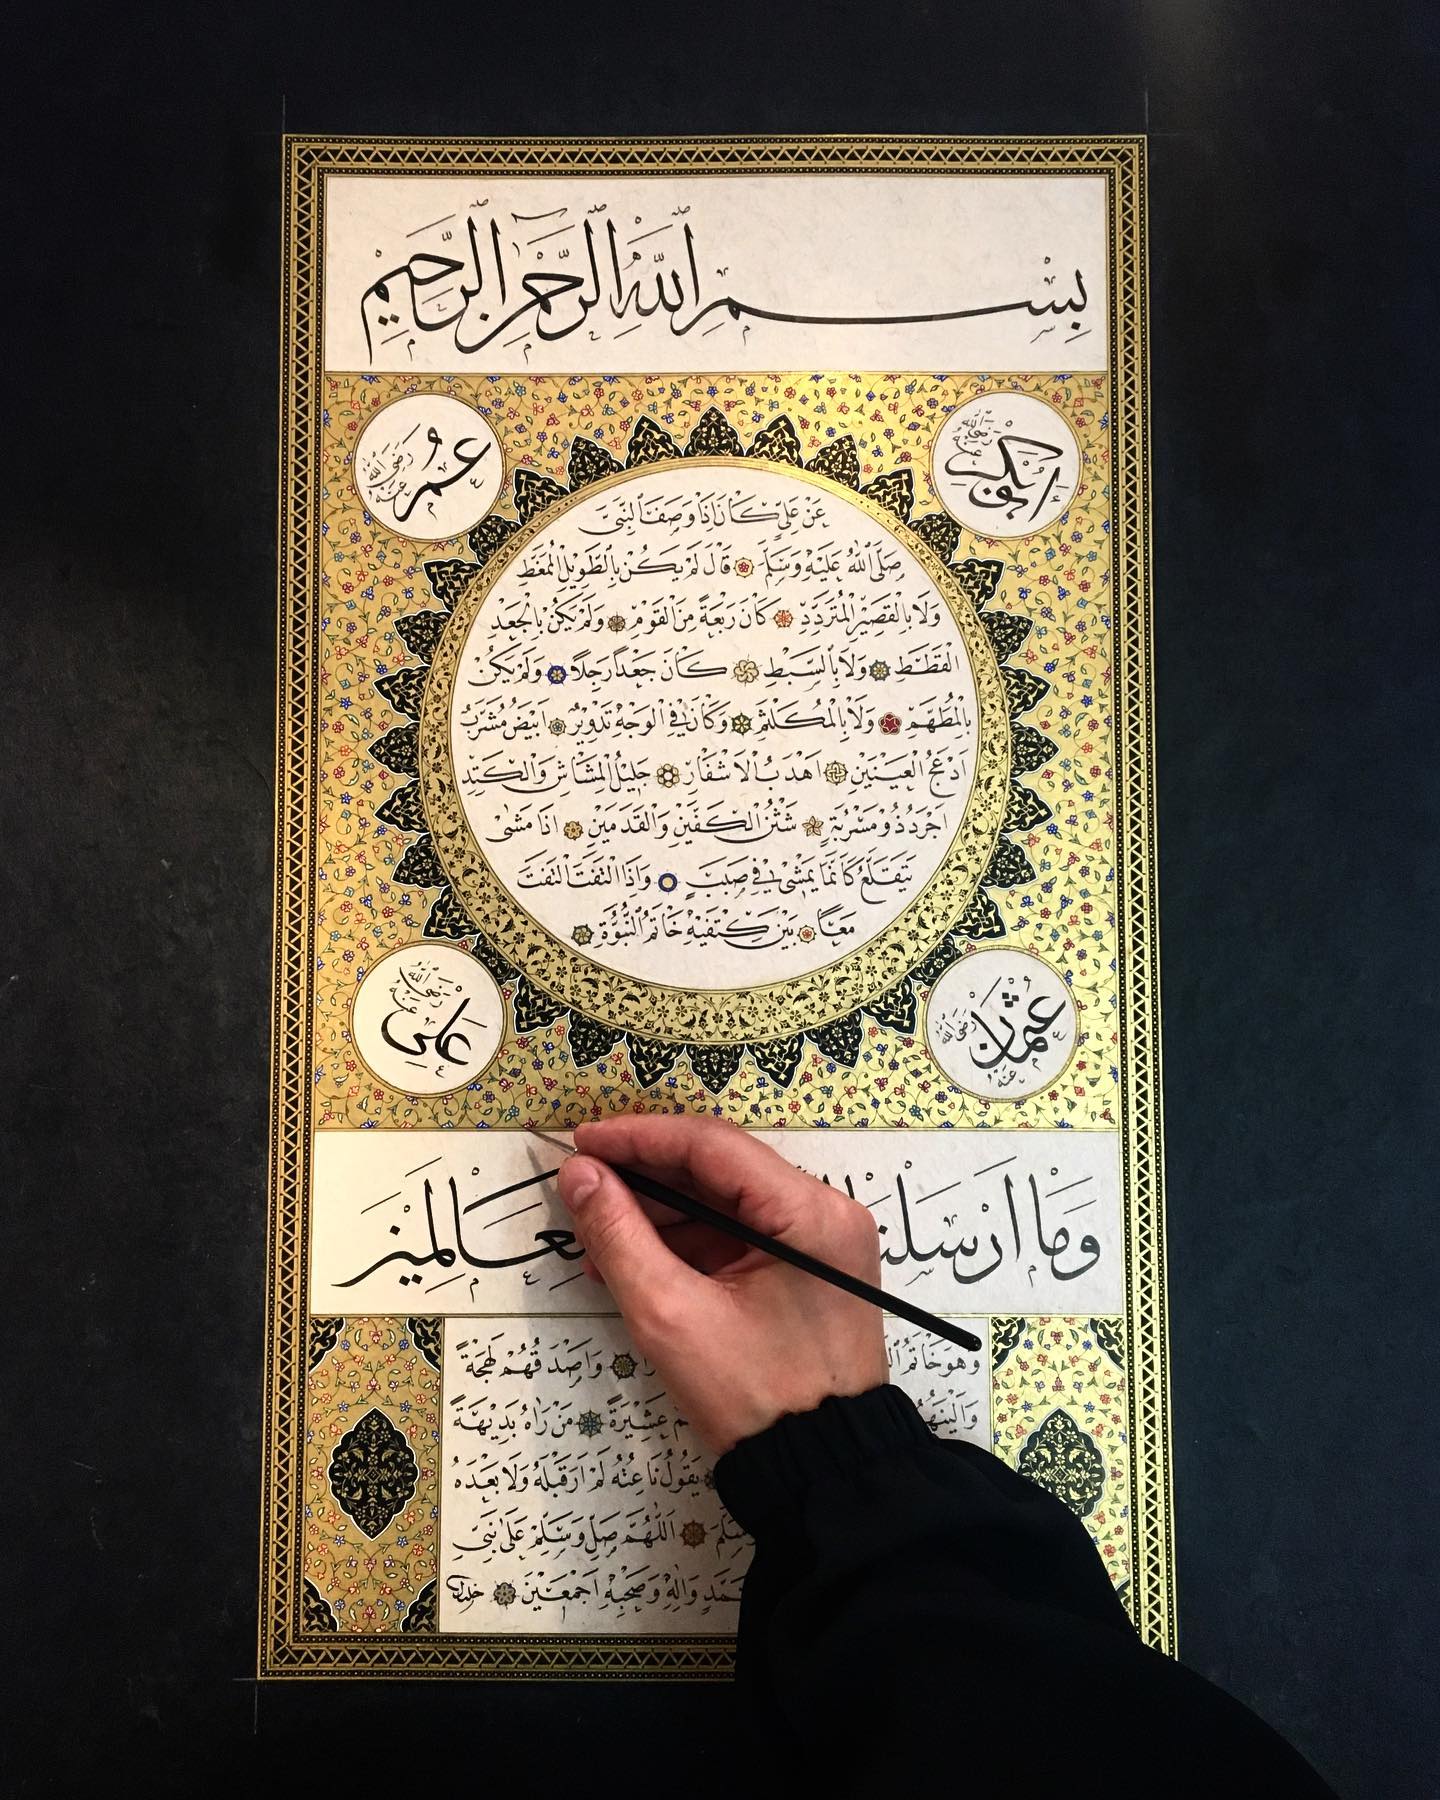 بِسْمِ اللهِ الرَّحْمٰنِ الرَّحِيمِ
ابُو بَكْرٍ رَضِىَ اللهُ عَنْهُ
عُمَرُ رَضِىَ اللهُ عَنْهُ
عَنْ عَلِيٍّ كَانَ اِذَا وَصَفَ النَّبِىَّ
صَلَّى اللهُ عَلَيْهِ وَسَلَّمَ قَالَ لَمْ يَكُنْ بِالطَّوِيلِ الْمُمَغَّطِ
وَلَا بِالْقَصِيرِ الْمُتَرَدِّدِ كَانَ رَبْعَةً مِنَ الْقَوْمِ وَلَمْ يَكُنْ بِالْجَعْدِ
الْقَطَطِ وَلَا بِالسَّبْطِ كَانَ جَعْدًا رَجِلًا وَلَمْ يَكُنْ
بِالْمُطَهَّمِ وَلَا بِالْمُكَلْثَمِ وَكَانَ فِى الْوَجْهِ تَدْوِيرٌ اَبْيَضُ مُشْرَبٌ
اَدْعَجُ الْعَيْنَيْنِ اَهْدَبُ الْاَشْفَارِ جَلِيلُ الْمُشَاشِ وَالْكَتِدِ
اَجْرَدُ ذُو مَسْرُبَةٍ شَثْنُ الْكَفَّيْنِ وَالْقَدَمَيْنِ اِذَا مَشٰى
يَتَقَلَّعُ كَاَنَّمَا يَمْشِى فِى صَبَبٍ وَاِذَا الْتَفَتَ الْتَفَتَ
مَعًا بَيْنَ كَتِفَيْهِ خَاتَمُ النُّبُوَّةِ
عُثْمَانُ رَضِىَ اللهُ عَنْهُ
عَلِى رَضِىَ اللهُ عَنْهُ
وَمَا اَرْسَلْنَا لِلْعَالَمِينَ
وَهُوَ خَاتَمُ وَاَصْدَقُهُمْ لَهْجَةً
وَاَلْيَنُهُمْ عَشِيرَةً مَنْ رَاٰهُ بَدِيهَةً
يَقُولُ نَاعِتُهُ لَمْ اَرَ قَبْلَهُ وَلَا بَعْدَهُ
اَللّٰهُمَّ صَلِّ وَسَلِّمْ عَلٰى نَبِىِّ
وَاٰلِهِ وَصَحْبِهِ اَجْمَعِينَ